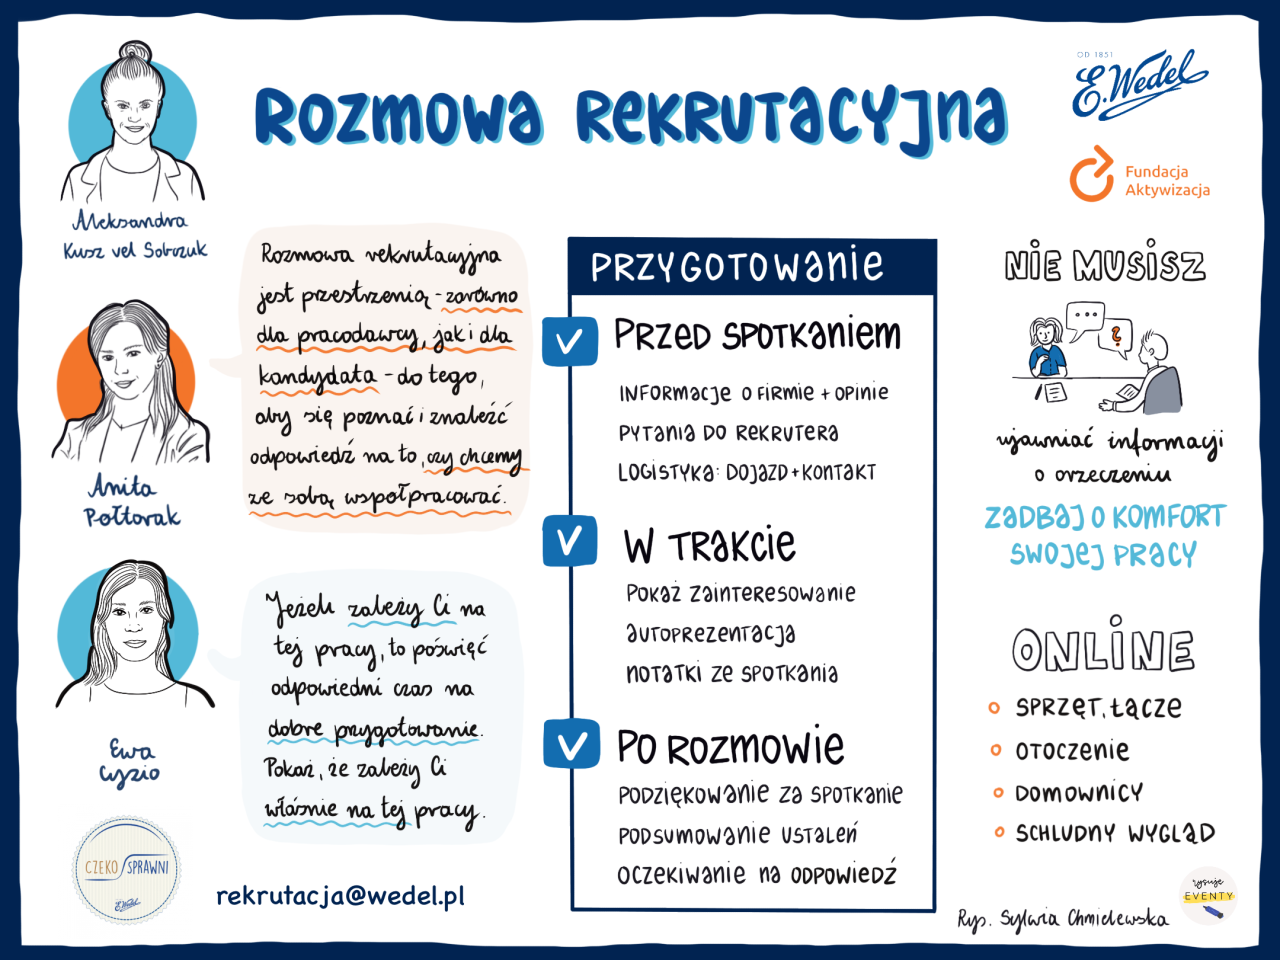 ROZMOWA REKRUTACYJNA
OD 1851
E.Wedel
Fundacja
Aktywizacja
Aleksandra
Kusz vel Sobczuk
Anita
Półtorak
Ewa
Cyzio
Rozmowa rekrutacyjna
jest przestrzenią - zarówno
dla pracodawcy, jak i dla
kandydata - do tego,
aby się poznać i znaleźć
odpowiedź na to, czy chcemy
ze sobą współpracować.
Jeżeli zależy Ci na
tej pracy, to poświęć
odpowiedni czas na
dobre przygotowanie.
Pokaż, że zależy Ci
właśnie na tej pracy.
CZEKO SPRAWNI
E.Wedel
rekrutacja@wedel.pl
PRZYGOTOWANIE
PRZED SPOTKANIEM
INFORMACJE O FIRMIE + OPINIE
PYTANIA DO REKRUTERA
LOGISTYKA: DOJAZD + KONTAKT
W TRAKCIE
POKAŻ ZAINTERESOWANIE
AUTOPREZENTACJA
NOTATKI ZE SPOTKANIA
PO ROZMOWIE
PODZIĘKOWANIE ZA SPOTKANIE
PODSUMOWANIE USTALEŃ
OCZEKIWANIE NA ODPOWIEDŹ
NIE MUSISZ
?
ujawniać informacji
o orzeczeniu
ZADBAJ O KOMFORT
SWOJEJ PRACY
ONLINE
SPRZĘT, ŁĄCZE
OTOCZENIE
DOMOWNICY
SCHLUDNY WYGLĄD
Rys. Sylwia Chmielewska
rysuje
EVENTY